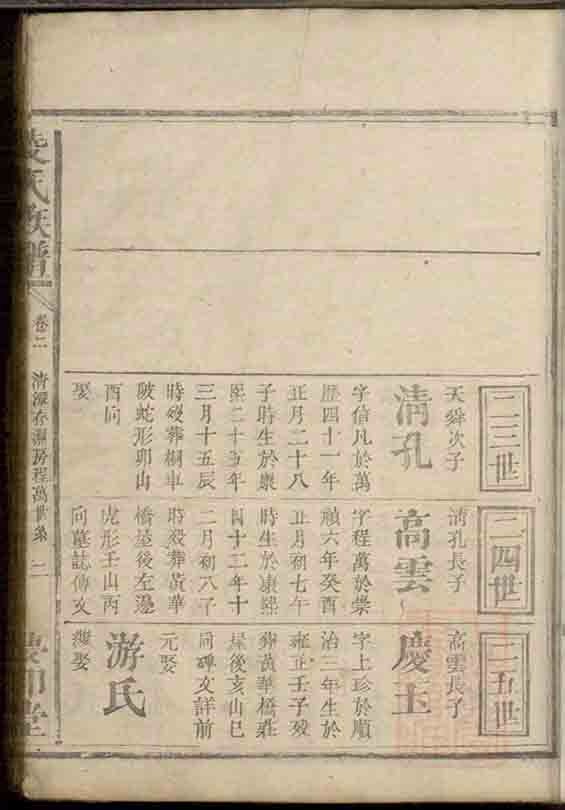 二三世
天舜次子
清孔
字信凡於萬
歷四十一年
正月二十八
子時生於康
熙二十五年
三月十五辰
時歿葬桐車
陂蛇形卯山
酉向
娶
二四世
清孔長子
高雲
字程萬於崇
禎六年癸酉
正月初七午
時生於康熙
四十二年十
二月初八子
時歿葬黃華
橋屋後左邊
虎形壬山丙
向墓誌傳文
二五世
高雲長子
慶玉
字上珍於順
治三年生於
雍正壬子歿
葬黃華橋莊
屋後亥山巳
向碑文詳前
元娶
游氏
娶
氏族譜
卷二
清潭存房程萬世系
二
堂